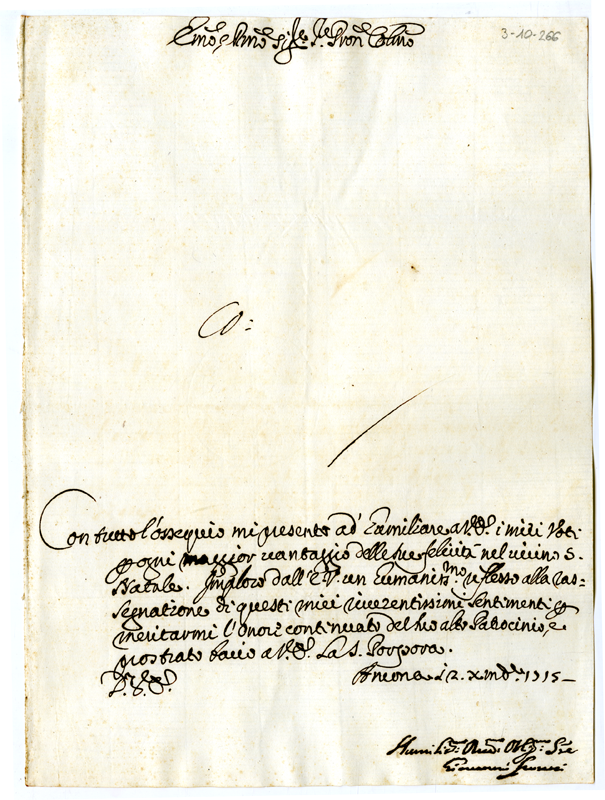 Em̃o, e Rmõ Sig.re Pron Colmo
3-10-266
Co:
Con tutto l'ossequio mi presento ad umiliare a V. E. i miei Voti
p ogni maggior vantaggio delle sue felicità nel vicino S.
Natale. Imploro dall'E. V. un umaniss.mo riflesso alla ras-
segnatione di questi miei riverentissimi sentimenti, p
meritarmi l'onore continuato del suo alto Patrocinio, e
prostrato bacio a V. E. La S. Porpora.
D. V. E. Ancona 12. Xmbr. 1715
Humiliss. Devot. Obligm. Ser
Giovanni